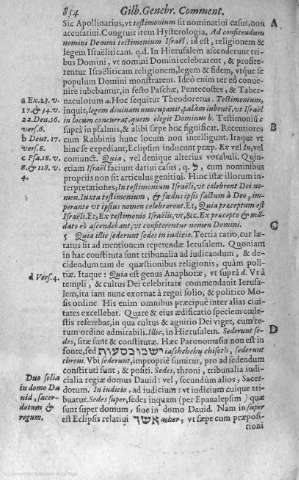 854 Gilb. Genebr. Comment.
Sic Apollinarius, vt testimonium sit nominatiui casus, nõ
accusatiui. Congruit item Hysterologia, Ad confitendum
nomini Domini testimonium Israël, id est, religionem &
legem Israëliticam. q.d. In Hierusalem ascenderunt tri-
bus Domini, vt nomini Domini celebrarent, & profite-
rentur Israëliticam religionem, legem & fidem, vísque se
populum Domini monstrarent. Ideò enim tot eo conue-
nire iubebantur, in festo Paschæ, Pentecostes, & Taber-
a Ex. 23. v. naculorum a. Hoc sequitur Theodoretus. Testimonium,
17. & 34. v. inquit, legem diuinam nuncupant, palàm iubenté, vt Israël
22. Deu. 16. in locum concurrat, quem elegit Dominus b. Testimonia
vers. 6. suprà in psalmis, & alibi sępe hoc significat. Recentiores
b Deut. 17. cum Rabbinis hunc locum non intelligunt. Itaque vt
vers. 6. hinc se expediant, Eclipsim inducunt præp. Ex vel In, vel
c Psa. 18. v. coniunct. Quia, vel denique alterius vocabuli. Quip-
8. & 118. v. etiam Israël faciunt datiui casus, q. ל, cum nominibus
4. propriis non sit articulus genitiui. Hinc istæ illorum in-
terpretationes, In testimonium Israëli, vt celebrent Dei no-
men. Iuxta testimonium, & fœdus ipsis factum à Deo, im-
perante vt ipsius nomen celebrarent. Et, Quia præceptum est
Israëli. Et, Ex testimonio Israëlis, vt, &c. Ex præcepto & mã-
dato eò ascendant, vt confiterentur nomen Domini.
5 Quia illic sederunt sedes in iudicio. Tertia causa, cur læ-
tatus sit ad mentionem repetendæ Ierusalem. Quoniam
in hac constituta sunt tribunalia ad iudicandum, & de-
cidendum tam de quæstionibus religionis, quàm poli-
d Vers. 4. tiæ. Itaque: Quia est genus Anaphoræ, vt suprà d. Vt à
templi, & cultus Dei celebritate commendauit Ierusa-
lem, ita iam nunc exornat à regni solio, & politico Mo-
sis ordine. His enim omnibus præcipuè inter alias ciui-
tates excellebat. Quare & eius ædificatio speciem cœle-
stis referebat, in qua cultus & agnitio Dei viget, cum re-
rum ordine admirabili. Illic, in Hierusalem. Sederunt se-
des, sitæ sunt & constitutæ. Hæc Paronomasia non est in
fonte, sed ישבו כסאות iashebu chisoth, sederunt
throni. Vbi sederunt, impropriè sumitur, pro ad sedendum
Duo solia constituti sunt, & positi. Sedes, throni, tribunalia iudi-
in domo Da- cialia regiæ domus Dauid: vel, secundùm alios, Sacer-
uid, sacer- dotum. In iudicio, ad iudicium: vt iudicium cuique tri-
dotum & buatur. Sedes super, sedes inquam (per Epanalepsim) quæ
regum. sunt super domum, siue in domo Dauid. Nam in super
est Eclipsis relatiui אשר asher, vt sæpe cum præpo-
sitioni